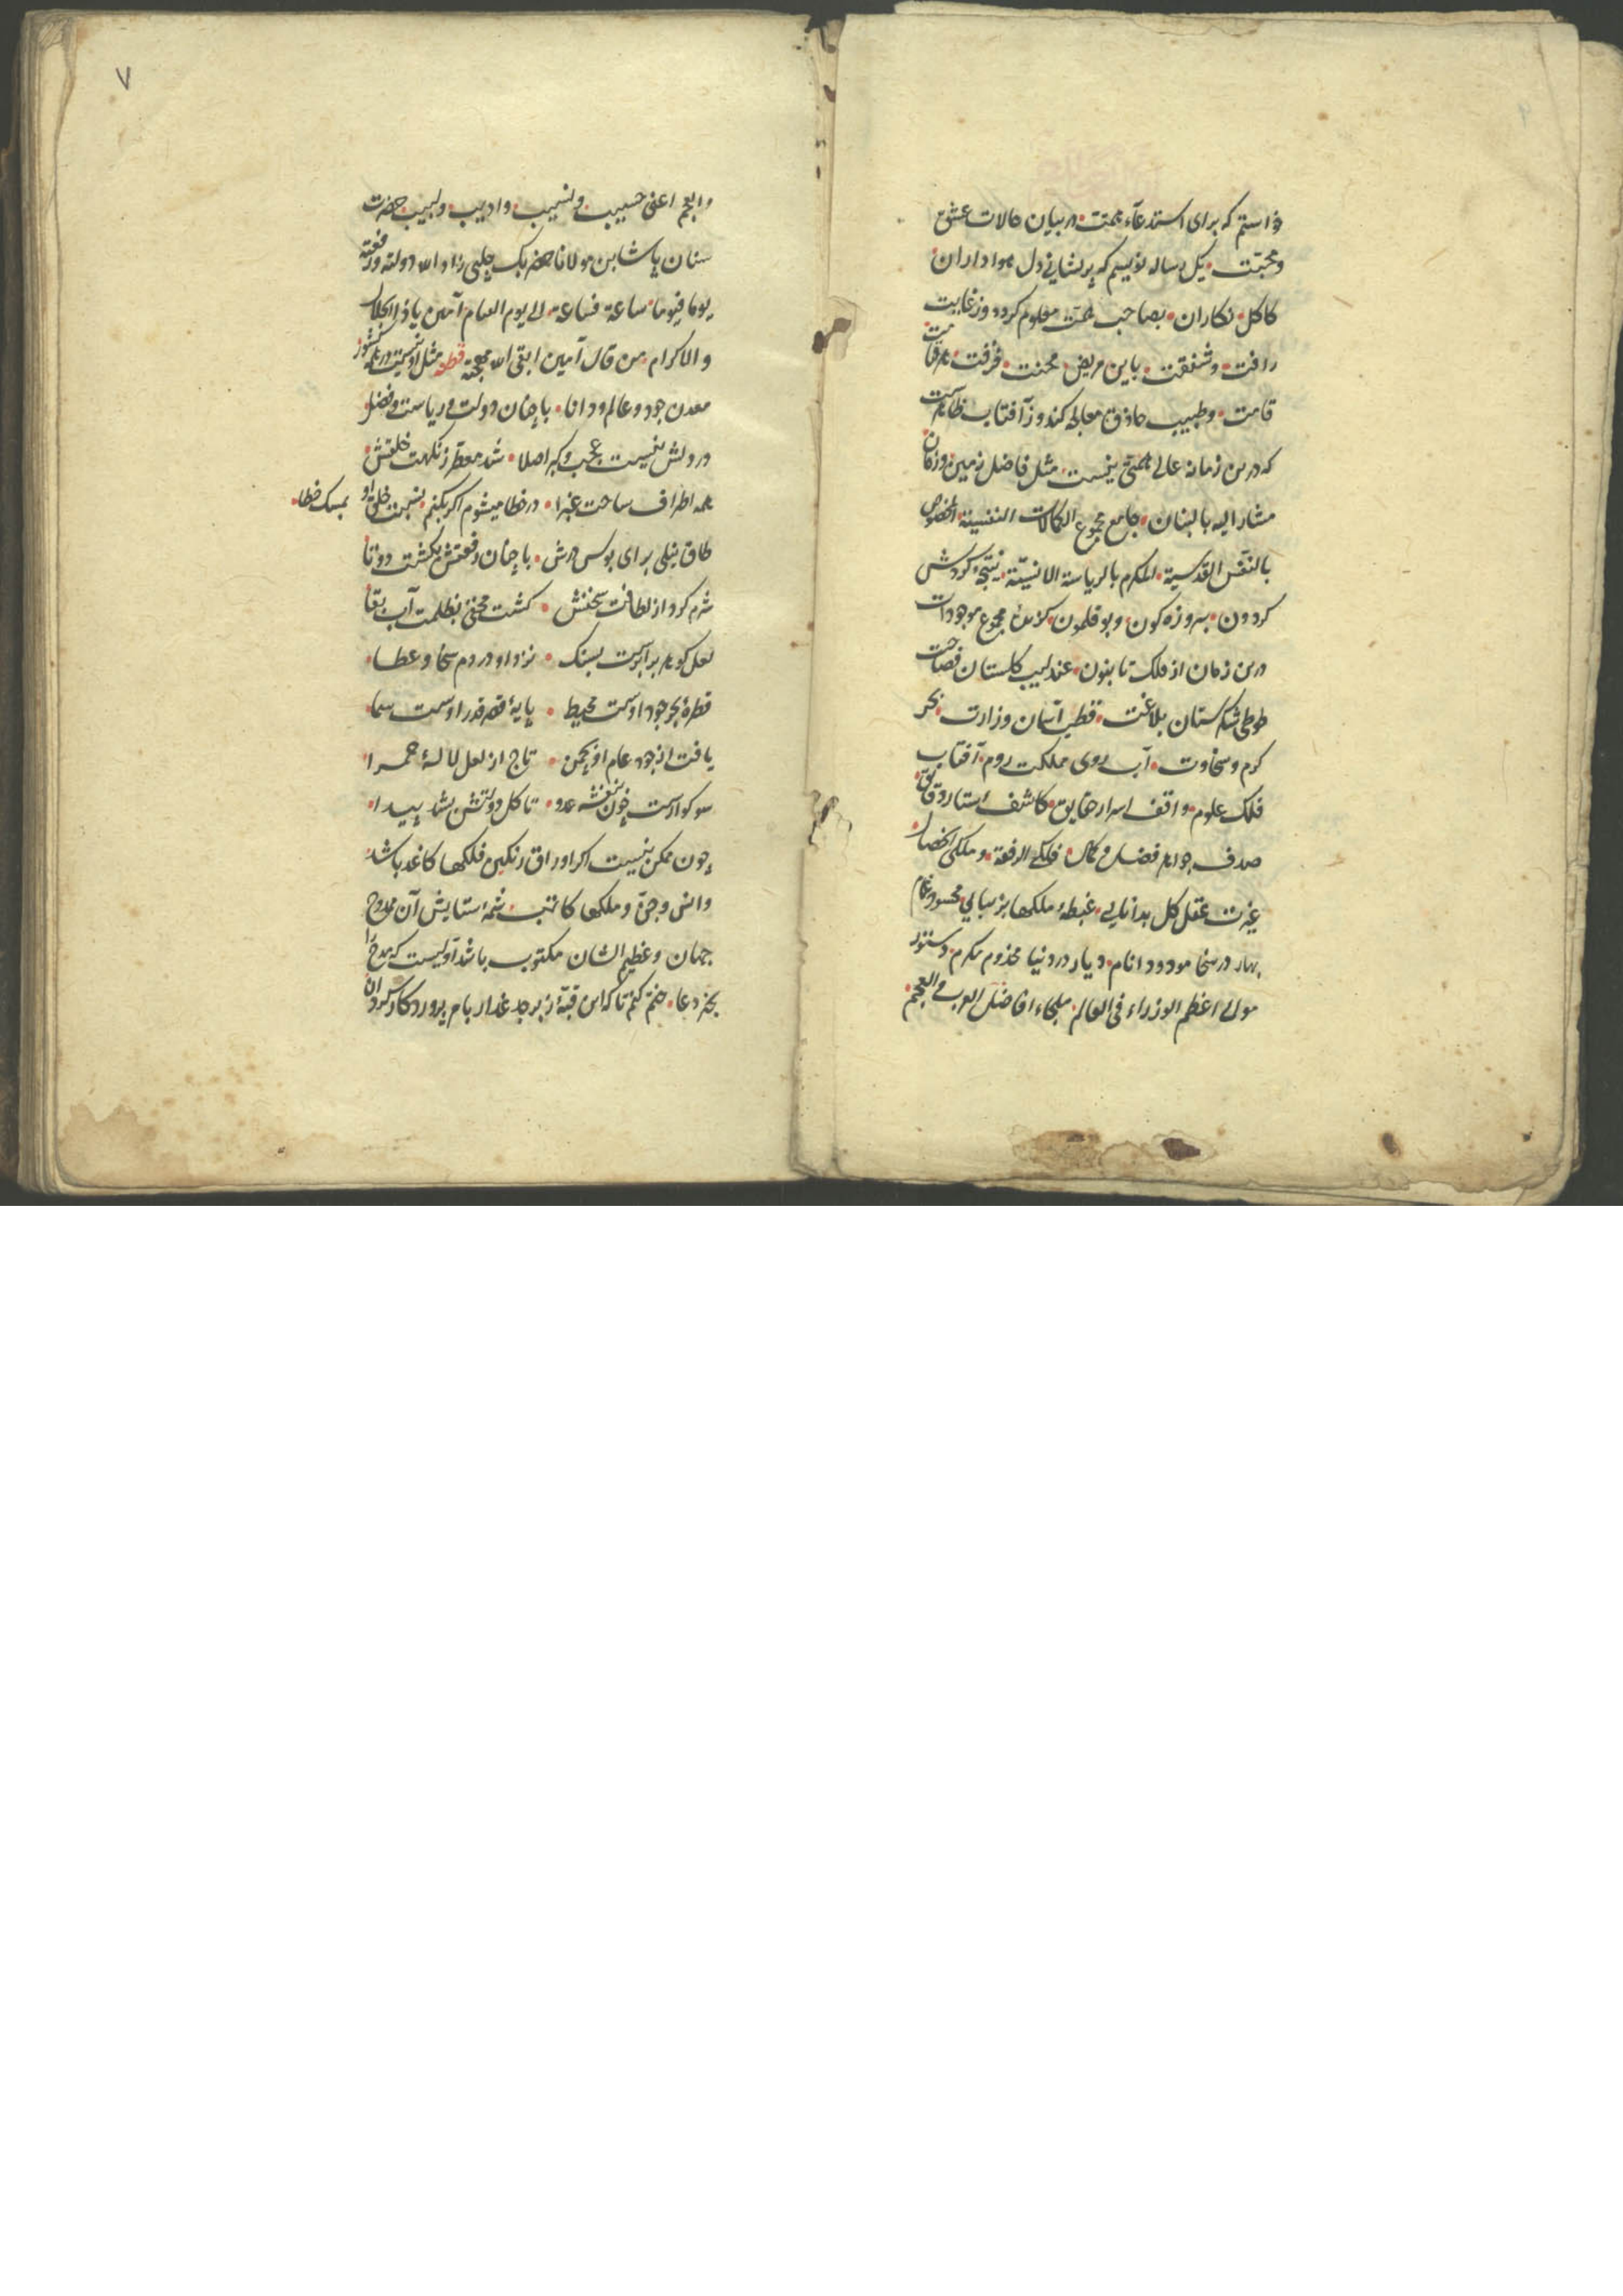 خواستم که برای استدعاء همت در بیان حالات عشق
و محبّت یک رساله نویسم که پریشانی دل هواداران
کاکل نکاران بصاحب همت معلوم کردد و ز غایت
رافت و شفقت باین مریض محنت فرقت
قامت و طبیب حاذق معالجه کند و ز آفتاب ظاهرست
که درین زمانه عالی همتی نیست مثل فاضل زمین و زمان
مشار الیه بالبنان جامع مجموع الکمالات النفسیة المخصوص
بالنفس القدسیة المکرم بالریاسة الانسیّة نتیجهٔ کردش
کردون بهروزه کون و بوقلمون کزیدهٔ مجموع موجودات
درین زمان از فلک تا بنون عندلیب کلستان فصاحت
طوطی شکرستان بلاغت قطب آسمان وزارت بحر
کرم و سخاوت آب روی مملکت روم آفتاب
فلک علوم واقف اسرار حقایق کاشف استار دقایق
صدف جواهر فضل و کمال فلکی الرفعة و ملکی الخصال
غیرت عقل کل بدانایی غبطهٔ ملکها بزیبایی محسود غمام
بهار در سخا مودود انام و دیار در دنیا مخدوم مکرم دستور
مولی اعظم الوزراء فی العالم ملجاء افاضل العرب و العجم
۷
و ابجم اعنی حسیب و نسیب و ادیب و لبیب حضرت
سنان پاشا بن مولانا خضر بک چلبی زاد الله دولته و رفعته
یوما فیوما ساعة فساعة الی یوم القیام آمین یا ذا الجلال
و الاکرام من قال آمین ابقی الله مهجته قطعه مثل او نیست در همه کشور
معدن جود و عالم و دانا با چنان دولت و ریاست و فضل
در دلش نیست عجب و کبر اصلا شد معطر ز نکهت خلقش
همه اطراف ساحت غبرا در خطا میشوم اکر بکنم نسبت خلق او بمسک خطا
طاق نیلی برای بوس درش با چنان رفعتش بکشت دوتا
شرم کرد از لطافت سخنش کشت مخفی بظلمت آب بقا
لعل کوهر برابرست بسنک نزد او در دم سخا و عطا
قطرهٔ بحر جود اوست محیط پایهٔ قصر قدر اوست سما
یافت از جود عام او بچمن تاج از لعل لالهٔ حمرا
سوکوارست چون بنفشه عدو تا کل دولتش بشد پیدا
چون ممکن نیست اکر اوراق رنکین فلکها کاغد باشد
و انس و جنّ و ملکها کاتب شمهٔ ستایش آن ممدوح
جهان و عظیم الشان مکتوب باشد اولیست که مدح را
بخیر دعا ختم کنم تا که این قبّهٔ زبرجد غدار بام پروردکار کردان